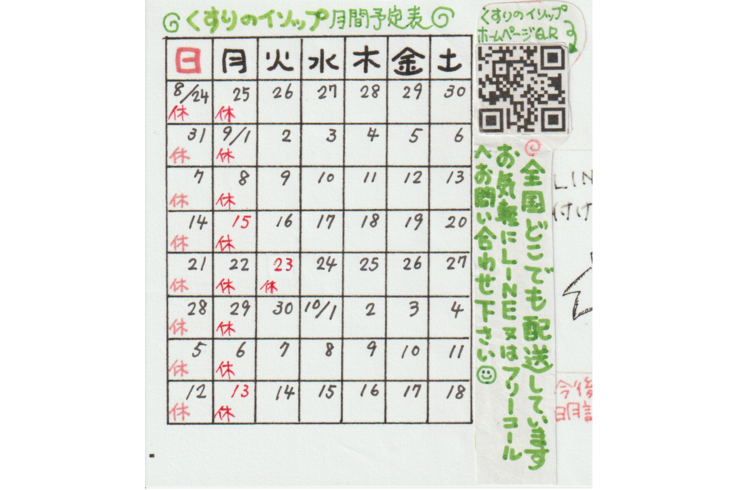 くすりのイソップ月間予定表
日 月 火 水 木 金 土
8/24 25 26 27 28 29 30
休 休
31 9/1 2 3 4 5 6
休 休
7 8 9 10 11 12 13
休 休
14 15 16 17 18 19 20
休 休
21 22 23 24 25 26 27
休 休 休
28 29 30 10/1 2 3 4
休 休
5 6 7 8 9 10 11
休 休
12 13 14 15 16 17 18
休 休
くすりのイソップ
ホームページQR
全国どこでも配送しています
お気軽にLINE又はフリーコール
へお問い合わせ下さい
LIN
付け
今後
日月